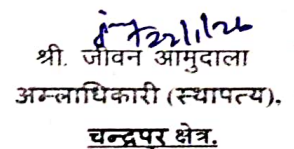 22/1/26
श्री. जीवन आमुदाला
अम्लाधिकारी (स्थापत्य),
चन्द्रपर क्षेत्र.